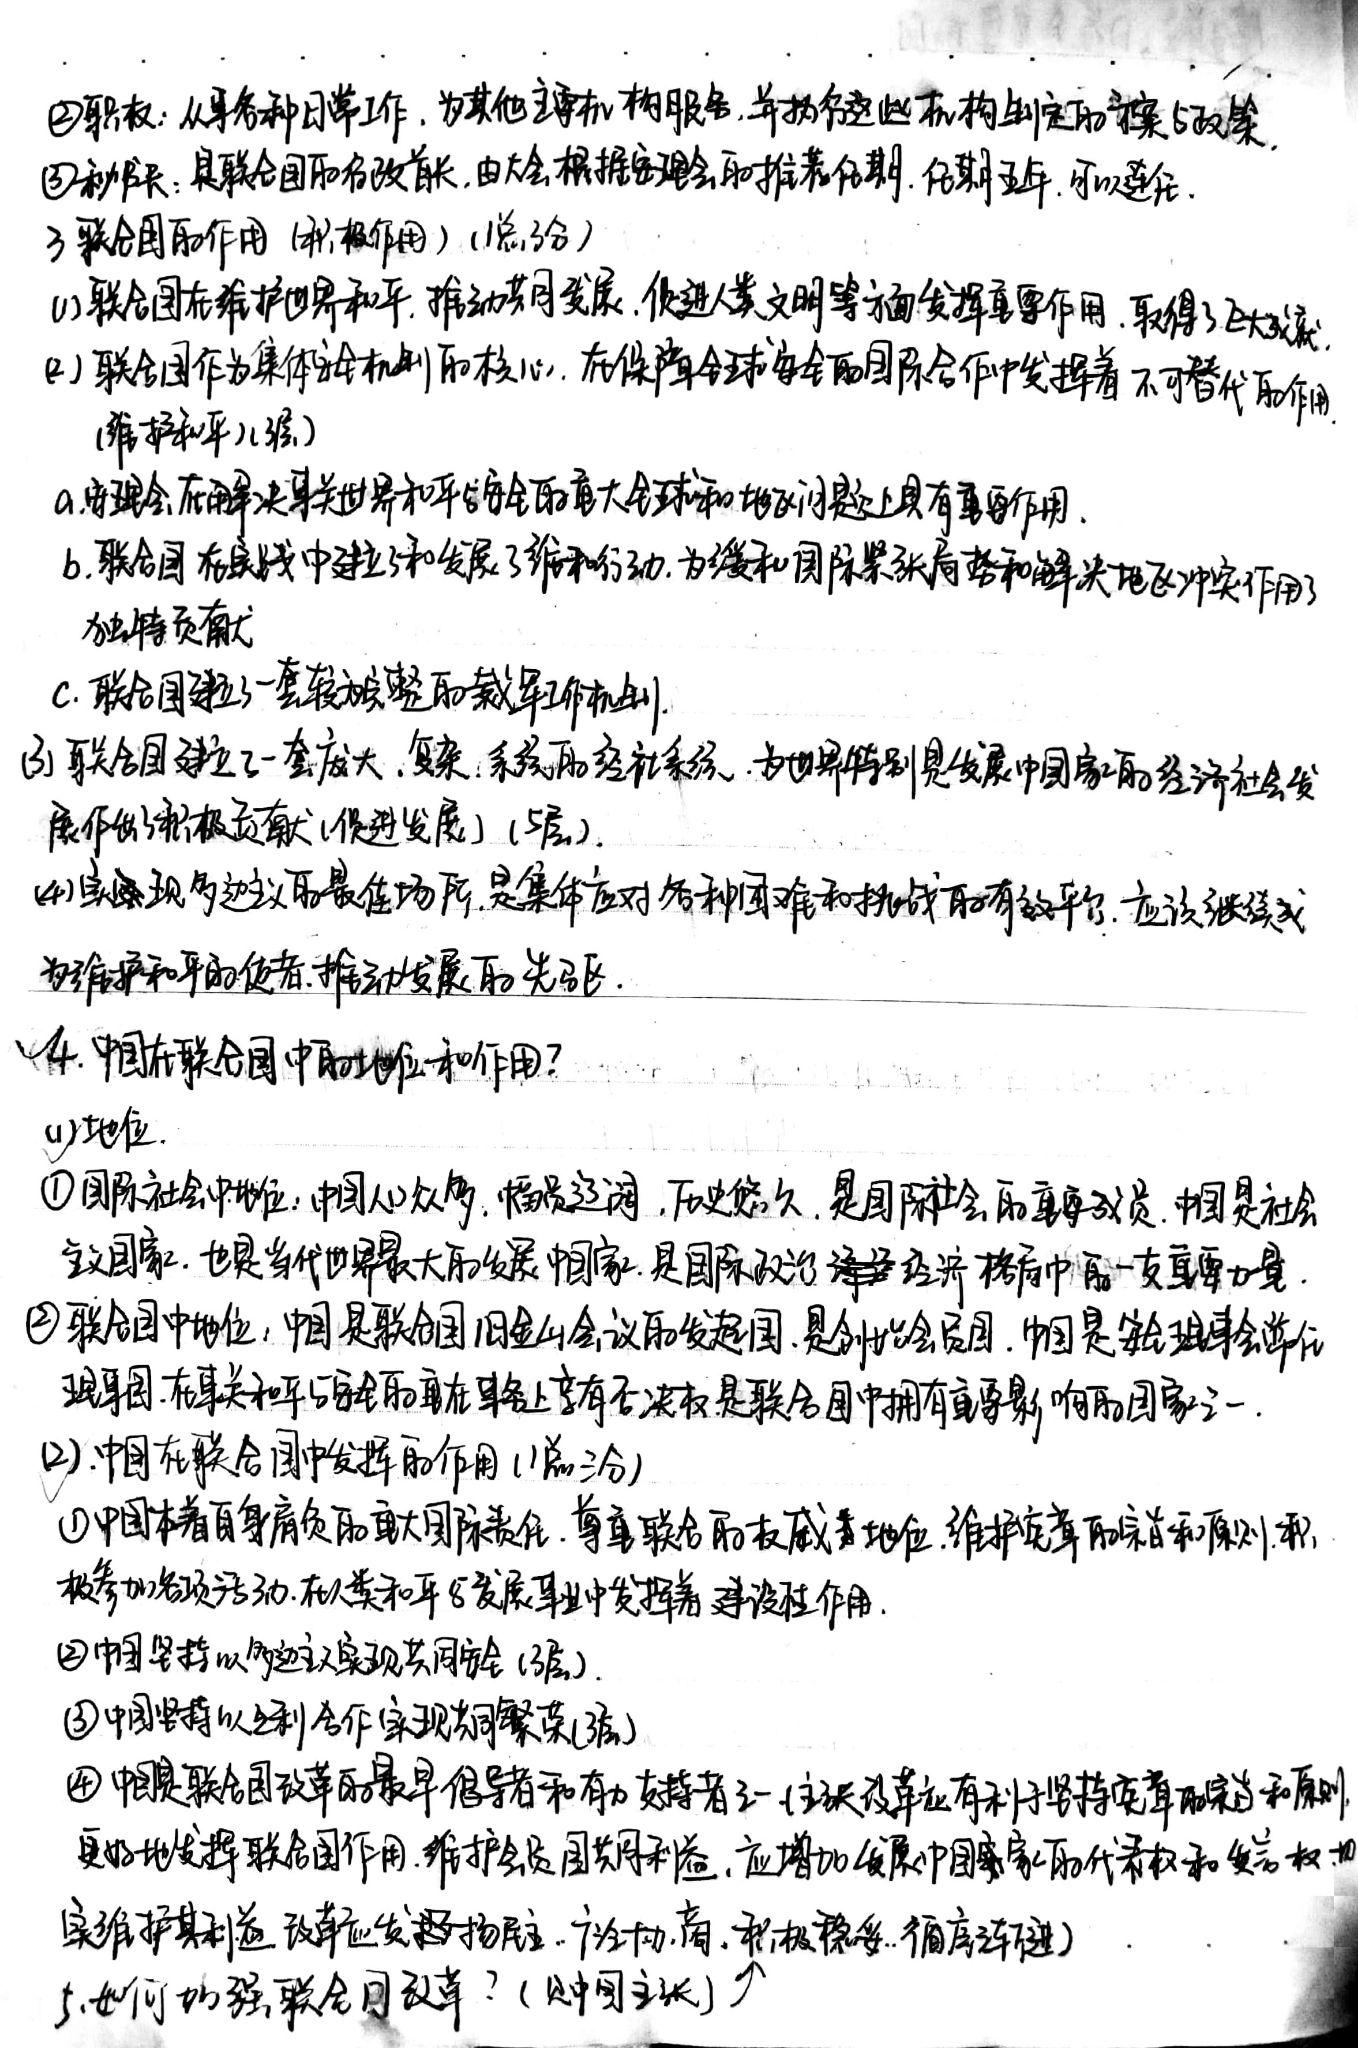 ②职权：从事各种日常工作，为其他主要机构服务，并执行这些机构制定的方案与政策。
③秘书长：是联合国的行政首长，由大会根据安理会的推荐任期，任期五年，可以连任．
3 联合国的作用（积极作用）（1总3分）
(1)联合国在维护世界和平，推动共同发展，促进人类文明等方面发挥重要作用，取得了巨大成就．
(2)联合国作为集体安全机制的核心，在保障全球安全的国际合作中发挥着不可替代的作用．
(维护和平)(3层)
a.安理会在解决事关世界和平与安全的重大全球和地区问题上具有重要作用．
b.联合国在实践中建立了和发展了维和行动，为缓和国际紧张局势和解决地区冲突作用了
独特贡献
c.联合国建立了一套较为完整的裁军工作机制．
(3)联合国建立了一套庞大、复杂、系统的经社系统，为世界特别是发展中国家的经济社会发
展作出了积极贡献(促进发展)(5层)．
(4)实现多边主义的最佳场所，是集体应对各种困难和挑战的有效平台，应该继续成
为维护和平的使者，推动发展的先驱．
4. 中国在联合国中的地位和作用？
(1)地位．
①国际社会中地位：中国人口众多，幅员辽阔，历史悠久，是国际社会的重要成员，中国是社会
主义国家，也是当代世界最大的发展中国家，是国际政治经济格局中的一支重要力量．
②联合国中地位：中国是联合国旧金山会议的发起国，是创始会员国，中国是安全理事会常任
理事国，在事关和平与安全的重在事务上享有否决权，是联合国中拥有重要影响的国家之一．
(2)．中国在联合国中发挥的作用（1总三分）
①中国本着自身肩负的重大国际责任，尊重联合的权威地位，维护宪章的宗旨和原则，积
极参加各项活动，在人类和平与发展事业中发挥着建设性作用．
②中国坚持以多边主义实现共同安全(3层)．
③中国坚持以互利合作实现共同繁荣(3层)
④中国是联合国改革的最早倡导者和有力支持者之一(主张改革应有利于坚持宪章的宗旨和原则，
更好地发挥联合国作用，维护会员国共同利益，应增加发展中国家的代表权和发言权，切
实维护其利益，改革应发扬民主，广泛协商，积极稳妥，循序渐进)
5.如何加强联合国改革？（见中国主张）↗